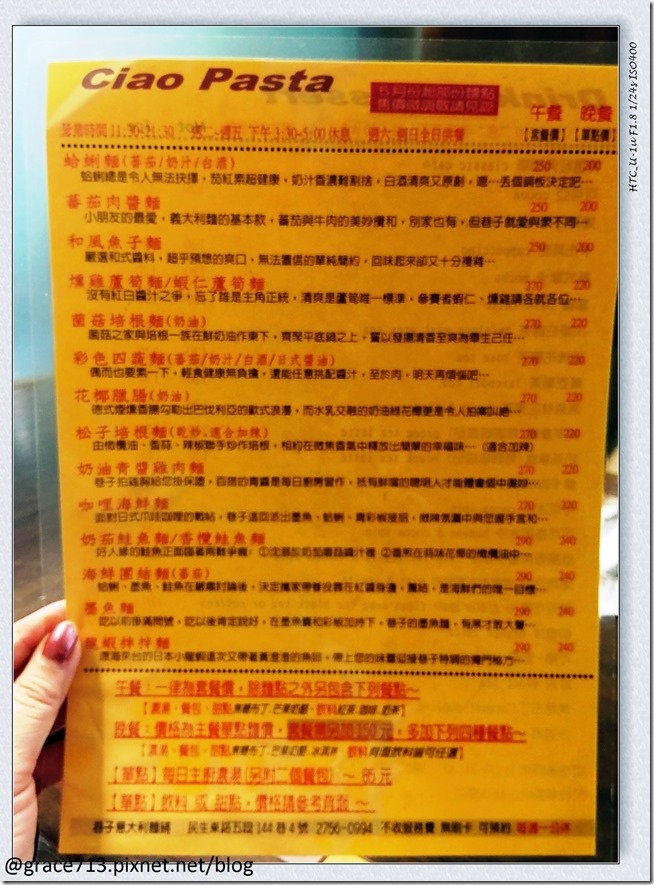 Ciao Pasta
5月份起部份麵點
售價微調敬請見諒
午餐 晚餐
營業時間 11:30-21:30 週二~週五 下午 3:30-5:00 休息 週六.週日全日供餐 【套餐價】【單點價】
蛤蜊麵(蕃茄/奶汁/白酒) 250 200
蛤蜊總是令人無法抉擇，茄紅素超健康，奶汁香濃難割捨，白酒清爽又原創，嗯…丟個銅板決定吧…
蕃茄肉醬麵 250 200
小朋友的最愛，義大利麵的基本款，蕃茄與牛肉的美妙攪和，別家也有，但巷子就愛與眾不同…
和風魚子麵 250 200
嚴選和式醬料，超乎預想的爽口，無法置信的單純簡約，回味起來卻又十分複雜…
燻雞蘆筍麵/蝦仁蘆筍麵 270 220
沒有紅白醬汁之爭，忘了誰是主角正統，清爽是蘆筍唯一標準，參賽者蝦仁、燻雞請各就各位…
菌菇培根麵(奶油) 270 220
菌菇之家與培根一族在鮮奶油作東下，齊聚平底鍋之上，誓以發揚清香至爽為畢生己任…
彩色四蔬麵(蕃茄/奶汁/白酒/日式醬油) 270 220
偶而也要素一下，輕食健康無負擔，還能任意挑配醬汁，至於肉，明天再煩惱吧…
花椰臘腸(奶油) 270 220
德式煙燻香腸勾勒出巴伐利亞的歐式浪漫，而水乳交融的奶油綠花椰更是令人拍案叫絕…
松子培根麵(乾炒,適合加辣) 270 220
由橄欖油、香蒜、辣椒聯手炒作培根，相約在微焦香氣中釋放出簡單的幸福味…(適合加辣)
奶油青醬雞肉麵 270 220
巷子拍雞胸給您掛保證，百搭的青醬是每日廚房
咖哩海鮮麵 270 220
面對日式爪哇咖哩的戰帖，巷子這回派出墨魚、蛤蜊、青彩椒接招，微辣氛圍中與您握手言和…
奶茄鮭魚麵/香欖鮭魚麵 290 240
好人緣的鮭魚正面臨著兩難爭寵
海鮮團結麵(蕃茄) 290 240
蛤蜊、墨魚、鮭魚在嚴肅討論後，決定攜家帶眷投靠在紅醬身邊，團結，是海鮮們的唯一目標…
墨魚麵 290 240
吃以前掛滿問號，吃以後肯定說好，在墨魚囊和彩椒加持下，巷子的墨魚麵，有黑才敢大聲…
龍蝦拌拌麵 290 240
渡海來台的日本小龍蝦這次又帶著黃澄澄的魚卵，帶上您的味蕾迎接巷子特調的獨門秘方…
午餐：一律為套餐價，除麵點之外另包含下列餐點~
【濃湯、餐包、甜點黑糖布丁.芒果奶酪、飲料紅茶.咖啡.奶茶】
晚餐：價格為主餐單點麵價，套餐需另加150元，多加下列四種餐點~
【濃湯、餐包、甜點黑糖布丁.芒果奶酪.冰淇淋、飲料背面飲料皆可任選】
【單點】每日主廚濃湯(另附二個餐包) ~ 85元
【單點】飲料 或 甜點，價格請參考背面 ~
巷子意大利麵鋪 民生東路五段144巷4號 2756-0994 不收服務費 無刷卡 可預約 每週一公休
HTC_U-1u F1.8 1/24s ISO400
@grace713.pixnet.net/blog